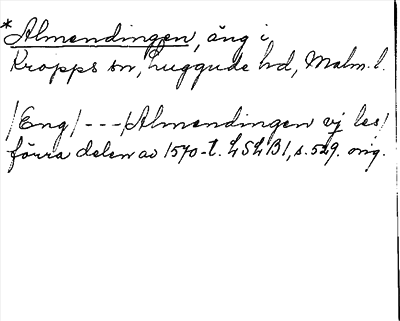 *Almendingen, äng i
Kropps sn, Luggude hd, Malm. l.
/Eng/ - - - /Almendingen vj les/
förra delen av 1570-t. LSLB1, s. 529. orig.